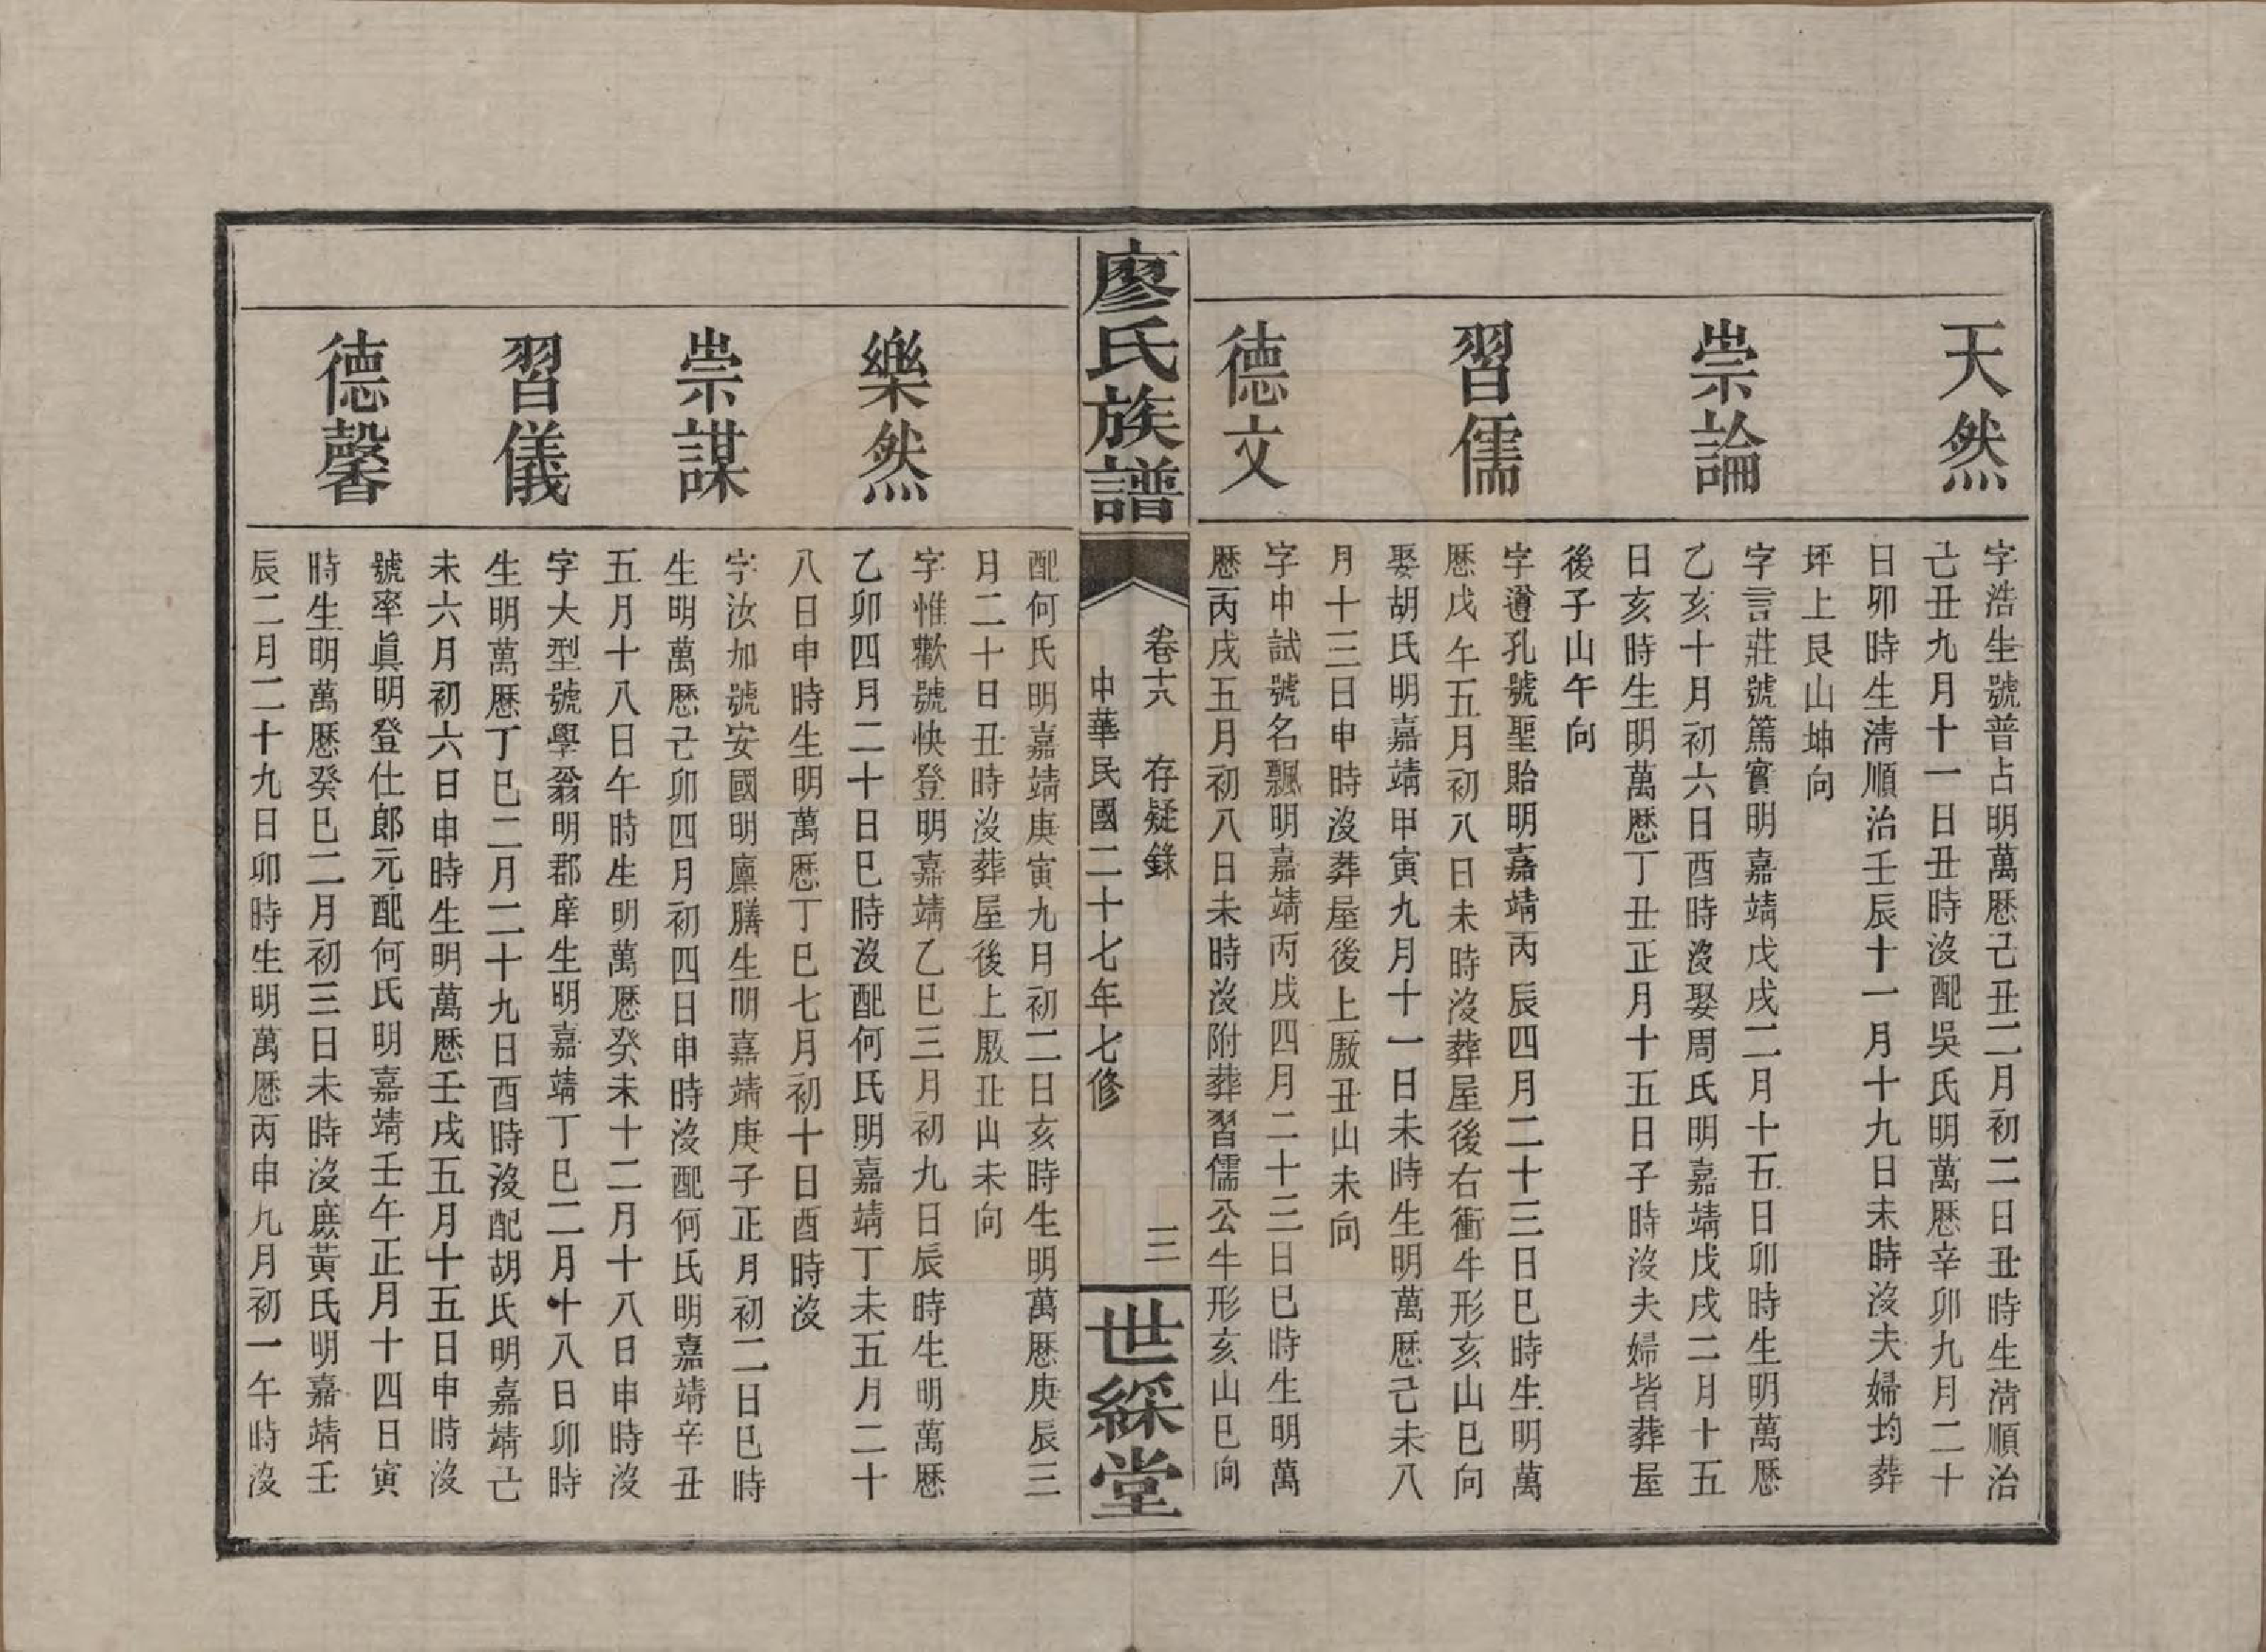 天然
字浩生號普占明萬歷己丑二月初二日丑時生淸順治
己丑九月十一日丑時沒配吳氏明萬歷辛卯九月二十
日卯時生淸順治壬辰十一月十九日未時沒夫婦均葬
坪上艮山坤向
崇論
字言莊號篤實明嘉靖戊戌二月十五日卯時生明萬歷
乙亥十月初六日酉時沒娶周氏明嘉靖戊戌二月十五
日亥時生明萬歷丁丑正月十五日子時沒夫婦皆葬屋
後子山午向
習儒
字遵孔號聖貽明嘉靖丙辰四月二十三日巳時生明萬
歷戊午五月初八日未時沒葬屋後右衝牛形亥山巳向
娶胡氏明嘉靖甲寅九月十一日未時生明萬歷己未八
月十三日申時沒葬屋後上厫丑山未向
德文
字中試號名飄明嘉靖丙戌四月二十三日巳時生明萬
歷丙戌五月初八日未時沒附葬習儒公牛形亥山巳向
廖氏族譜
卷十六 存疑錄 三
中華民國二十七年七修
世綵堂
配何氏明嘉靖庚寅九月初二日亥時生明萬歷庚辰三
月二十日丑時沒葬屋後上厫丑山未向
樂然
字惟歡號快登明嘉靖乙巳三月初九日辰時生明萬歷
乙卯四月二十日巳時沒配何氏明嘉靖丁未五月二十
八日申時生明萬歷丁巳七月初十日酉時沒
崇謀
字汝加號安國明廩膳生明嘉靖庚子正月初二日巳時
生明萬歷己卯四月初四日申時沒配何氏明嘉靖辛丑
五月十八日午時生明萬歷癸未十二月十八日申時沒
習儀
字大型號學翁明郡庠生明嘉靖丁巳二月十八日卯時
生明萬歷丁巳二月二十九日酉時沒配胡氏明嘉靖己
未六月初六日申時生明萬歷壬戌五月十五日申時沒
德馨
號率眞明登仕郎元配何氏明嘉靖壬午正月十四日寅
時生明萬歷癸巳二月初三日未時沒庶黃氏明嘉靖壬
辰二月二十九日卯時生明萬歷丙申九月初一午時沒